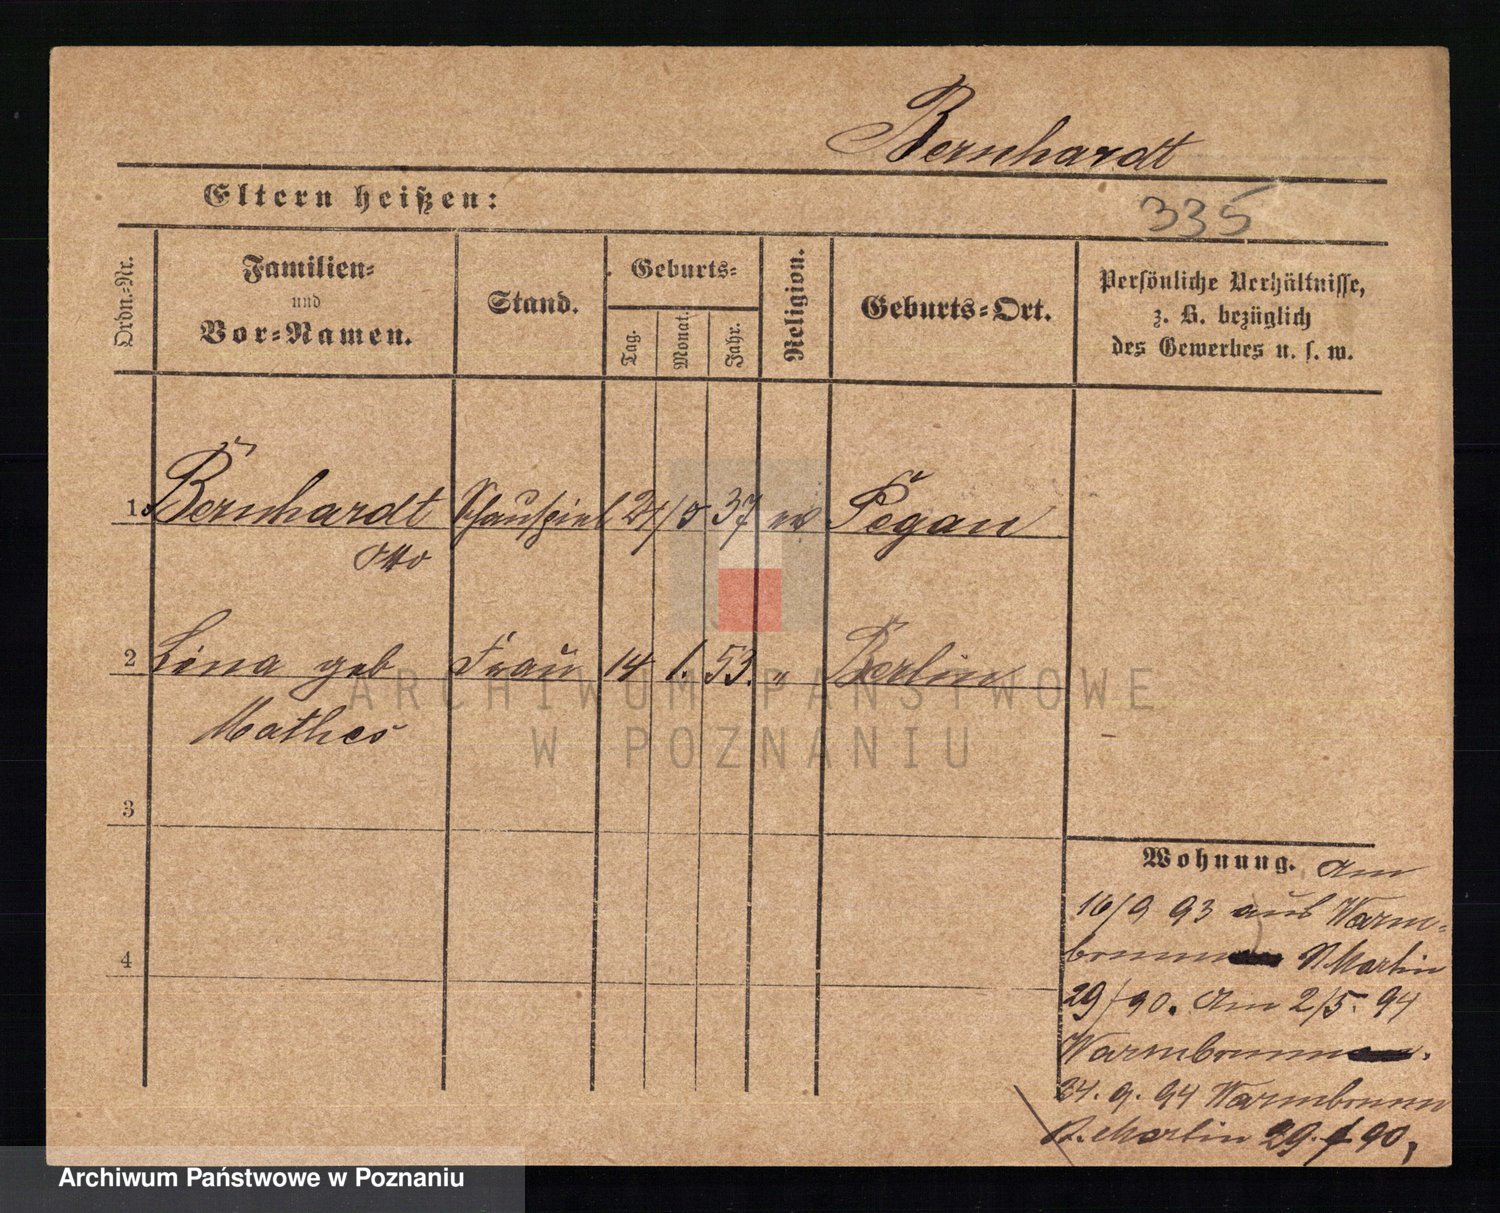 Bernhardt
Eltern heißen:
335
Ordn.-Nr.
Familien-
und
Vor-Namen.
Stand.
Geburts-
Tag.
Monat.
Jahr.
Religion.
Geburts-Ort.
Persönliche Verhältnisse,
z. B. bezüglich
des Gewerbes u. s. w.
1. Bernhardt Schauspiel 37 ev Pegau
Otto
2 Lina geb Frau 14 1. 53. " Berlin
Mathes
ARCHIWUM PAŃSTWOWE
W POZNANIU
3
Wohnung. Am
16/9 93 aus Warm-
brunn St Martin
4
29/90. Am 2/5. 94
Warmbrunn.
24. 9. 94 Warmbrunn
St. Martin 29. / 90,
Archiwum Państwowe w Poznaniu